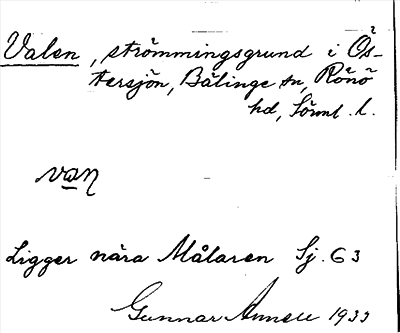 Valen, strömmingsgrund i Ös-
tersjön, Bälinge sn, Rönö
hd, Sörml. l.
van
Ligger nära Målaren Sj. 63
Gunnar Annell 1933